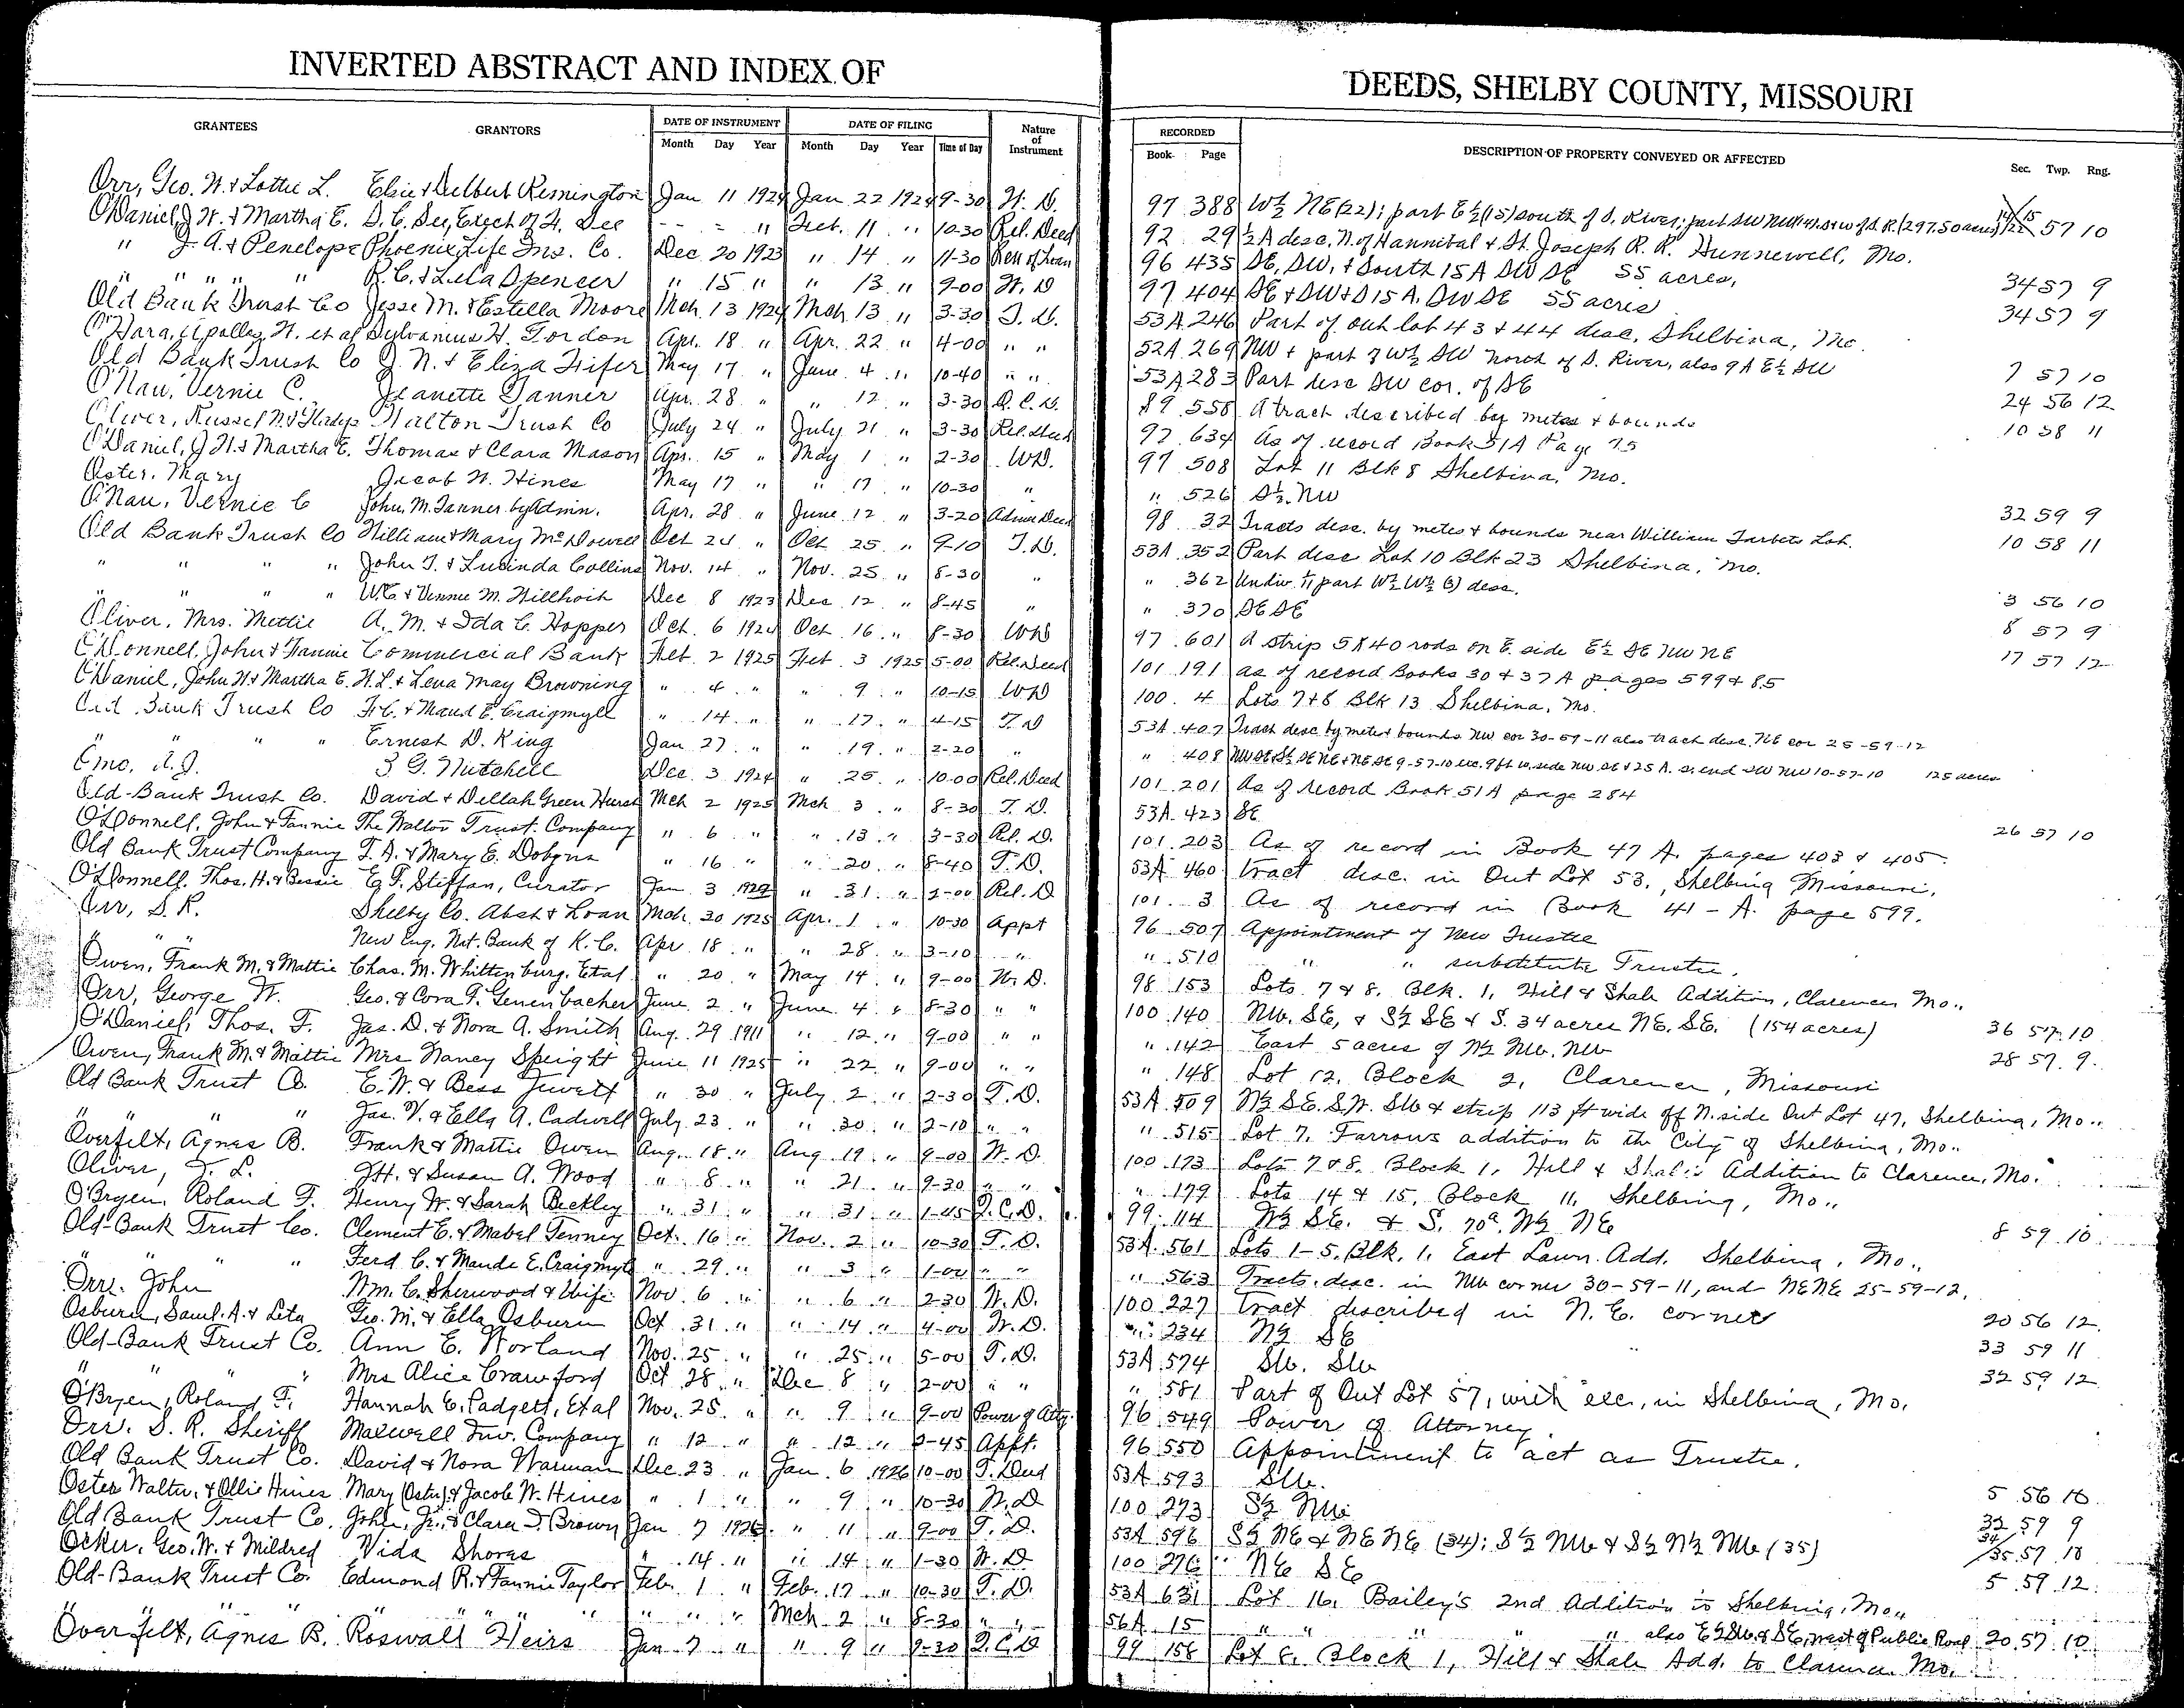 INVERTED ABSTRACT AND INDEX OF DEEDS, SHELBY COUNTY, MISSOURI
GRANTEES GRANTORS DATE OF INSTRUMENT DATE OF FILING Nature of Instrument RECORDED DESCRIPTION OF PROPERTY CONVEYED OR AFFECTED
Month Day Year Month Day Year Time of Day Book Page Sec. Twp. Rng.
Orr, Geo. W. & Lottie L. Elsie & Delbert Remington Jan 11 1924 Jan 22 1924 9-30 W. D. 97 388 W½ NE (22); part E½ (15) south of S. River; part SW NW (14) (297.50 acres) 14/15/22 57 10
O'Daniel, J W. & Martha E. Feb. 11 " 10-30 Rel. Deed 92 29 ½ A desc, N. of Hannibal & St. Joseph R. R. Hunnewell, Mo.
" J. A. & Penelope Phoenix Life Ins. Co. Dec. 20 1923 " 14 " 11-30 96 435 SE, SW, & South 15 A SW SE 55 acres, 34 57 9
" " " " R. C. & Lula Spencer " 15 " " 13 " 9-00 W. D 97 404 SE & SW & S 15 A. SW SE 55 acres 34 57 9
Old Bank Trust Co Jesse M. & Estella Moore Mch 13 1924 Mch 13 " 3-30 T. D. 53A 246 Part of out lot 43 & 44 desc, Shelbina, Mo.
O'Hara, Apollos W. et al Sylvanius H. Tordon Apr. 18 " Apr. 22 " 4-00 " " 52A 269 NW & part of W½ SW north of S. River, also 9 A E½ SW 7 57 10
Old Bank Trust Co J. N. & Eliza Fifer May 17 " June 4 " 10-40 " " 53A 283 Part desc SW cor. of SE 24 56 12
O'Nau, Vernie C. Jeanette Tanner Apr. 28 " " 12 " 3-30 Q. C. D. 89 558 A tract described by metes & bounds 10 58 11
Oliver, Russel N & Gladys Walton Trust Co July 24 " July 21 " 3-30 Rel. Deed 92 634 As of record Book 51A Page 75
O'Daniel, J W. & Martha E. Thomas & Clara Mason Apr. 15 " May 1 " 2-30 WD. 97 508 Lot 11 Blk 8 Shelbina, Mo.
Oster, Mary Jacob W. Hines May 17 " " 17 " 10-30 " " 526 S½ NW 32 59 9
O'Nau, Vernie C John M. Tanner by Admin. Apr. 28 " June 12 " 3-20 Admn Deed 98 32 Tracts desc. by metes & bounds near William Lot. 10 58 11
Old Bank Trust Co William & Mary McDowell Oct 24 " Oct 25 " 9-10 T. D. 53A 352 Part desc Lot 10 Blk 23 Shelbina, Mo.
" " " " John T. & Lucinda Collins Nov. 14 " Nov. 25 " 8-30 " " 362 Undiv. 1/11 part W½ W½ (3) desc. 3 56 10
" " " " W.C. & Vennie M. Dec 8 1923 Dec 12 " 8-45 " " 370 SE SE 8 57 9
Oliver, Mrs. Mettie A. M. & Ida C. Hopper Oct. 6 1924 Oct. 16 " 8-30 WD 97 601 A strip 5X40 rods on E. side E½ SE NW NE 17 57 12
O'Donnell, John & Fannie Commercial Bank Feb. 2 1925 Feb. 3 1925 5-00 Rel. Deed 101 191 as of record Books 30 & 37A pages 599 & 85
O'Daniel, John W. & Martha E. H. L. & Lena May Browning " 4 " " 9 " 10-15 WD 100 4 Lots 7 & 8 Blk 13 Shelbina, Mo.
Old Bank Trust Co F. C. & Maud E. Craigmyle " 14 " " 17 " 4-15 T. D 53A 407 Tract desc by metes & bounds NW cor 30-59-11 also tract desc. NE cor 25-59-12
" " " " Ernest D. King Jan 27 " " 19 " 2-20 " " 408 125 acres
J. G. Mitchell Dec. 3 1924 " 25 " 10-00 Rel. Deed 101 201 As of record Book 51A page 284
Old-Bank Trust Co. David & Dellah Green Hurst Mch 2 1925 Mch 3 " 8-30 T. D. 53A 423 SE 26 57 10
O'Donnell, John & Fannie The Walton Trust Company " 6 " " 13 " 3-30 Rel. D. 101 203 As of record in Book 47 A. pages 403 & 405.
Old Bank Trust Company T. A. & Mary E. Dobyns " 16 " " 20 " 8-40 T. D. 53A 460 tract desc. in Out Lot 53, Shelbina Missouri.
O'Donnell. Thos. H. & Bessie E. F. Stiffan, Curator Jan 3 " 31 " 2-00 Rel. D 101 3 As of record in Book 41-A. page 599.
Orr, S. R. Shelby Co. Abst & Loan Mch 20 1925 Apr. 1 " 10-30 Appt 96 507 Appointment of New Trustee
" " New Eng. Nat. Bank of K. C. Apr 18 " " 28 " 3-10 " " 510 " " substitute Trustee.
Owen, Frank M. & Mattie Chas. M. Whittenburg, Etal " 20 " May 14 " 9-00 W. D. 98 153 Lots 7 & 8. Blk. 1, Hill & Shale Addition, Clarence, Mo.
Orr, George W. Geo. & Cora F. Genenbacher June 2 " June 4 " 8-30 " " 100 140 NW. SE, & S½ SE & S. 34 acres NE. SE. (154 acres) 36 57 10
O'Daniel, Thos. F. Jas. D. & Nora A. Smith Aug. 29 1911 " 12 " 9-00 " " " 142 East 5 acres of W½ NW. NW 28 57 9
Owen, Frank M. & Mattie Mrs Nancy Speight June 11 1925 " 22 " 9-00 " " " 148 Lot 12, Block 2, Clarence, Missouri
Old Bank Trust Co. E. W. & Bess Jewett " 30 " July 2 " 2-30 T. D. 53A 509 W½ SE. SW. SW & strip 113 ft wide off N. side Out Lot 47, Shelbina, Mo.
" " " " Jas. V. & Ella A. Cadwell July 23 " " 30 " 2-10 " " " 515 Lot 7, Farrows addition to the City of Shelbina, Mo.
Overfelt, Agnes B. Frank & Mattie Owen Aug. 18 " Aug 19 " 9-00 W. D. 100 173 Lots 7 & 8. Block 1, Hill & Shale's Addition to Clarence, Mo.
Oliver, T. L. J.H. & Susan A. Wood " 8 " " 21 " 9-30 " " " 179 Lots 14 & 15, Block 11, Shelbina, Mo.
O'Bryen, Roland F. Henry W. & Sarah Beckley " 31 " " 31 " 1-45 Q. C. D. 99 114 W½ SE. & S. 70a. W½ NE 8 59 10
Old-Bank Trust Co. Clement E. & Mabel Tenney Oct. 16 " Nov. 2 " 10-30 T. D. 53A 561 Lots 1-5, Blk. 1, East Lawn Add. Shelbina, Mo.
" " " Ferd C. & Maude E. Craigmyle " 29 " " 3 " 1-00 " " " 563 Tracts desc. in NW corner 30-59-11, and NE NE 25-59-12.
Orr, John Wm. C. Sherwood & Wife Nov. 6 " " 6 " 2-30 W. D. 100 227 tract described in N. E. corner 20 56 12
Osburn, Saml. A. & Leta Geo. M. & Ella Osburn Oct 31 " " 14 " 4-00 W. D. " 234 N½ SE 33 59 11
Old-Bank Trust Co. Ann E. Worland Nov. 25 " " 25 " 5-00 T. D. 53A 574 SW. SW 32 59 12
" " " Mrs Alice Crawford Oct 28 " Dec 8 " 2-00 " " " 581 Part of Out Lot 57, with exc, in Shelbina, Mo.
O'Bryen, Roland F. Hannah E. Padgett, Etal Nov. 25 " " 9 " 9-00 Power of Atty. 96 549 Power of Attorney
Orr. S. R. Sheriff Maxwell Inv. Company " 12 " " 12 " 2-45 Appt. 96 550 Appointment to act as Trustee.
Old Bank Trust Co. David & Nora Warman Dec. 23 " Jan. 6 1926 10-00 T. Deed 53A 593 SW. 5 56 10
Oster Walter, & Ollie Hines Mary (Oster) & Jacob W. Hines " 1 " " 9 " 10-30 W. D 100 273 S½ NW 32 59 9
Old Bank Trust Co. John, Jr., & Clara D. Brown Jan 7 1926 " 11 " 9-00 T. D. 53A 596 S½ NE & NE NE (34): S½ NW & S½ N½ NW (35) 34/35 57 10
Ocker, Geo. W. & Mildred Vida Shores " 14 " " 14 " 1-30 W. D 100 276 NE SE 5 59 12
Old-Bank Trust Co. Edmond R. & Fannie Taylor Feb. 1 " Feb. 17 " 10-30 T. D. 53A 631 Lot 16, Bailey's 2nd Addition to Shelbina, Mo.
" " " " " " " Mch 2 " 8-30 " " 56A 15 " " " " also E½ SW. & SE, west of Public Road 20 57 10
Overfelt, Agnes B. Roswall Heirs Jan 7 " " 9 " 9-30 Q. C. D 99 158 Lot 8, Block 1, Hill & Shale Add. to Clarence Mo.